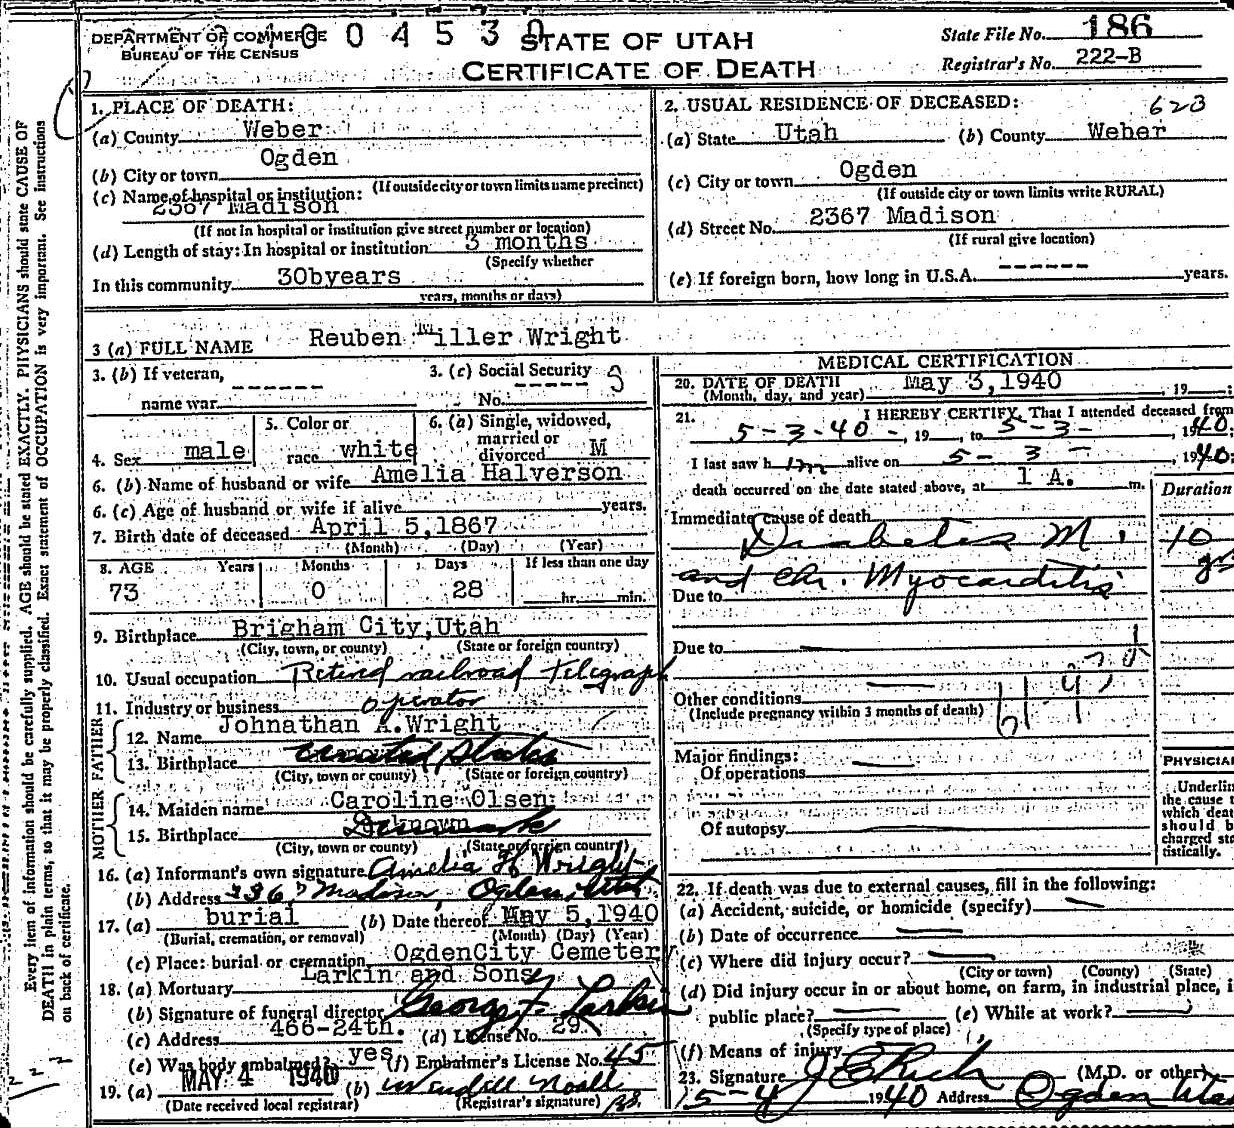 DEPARTMENT OF COMMERCE
BUREAU OF THE CENSUS
0 0 4 5 3 0
STATE OF UTAH
CERTIFICATE OF DEATH
State File No. 186
Registrar's No. 222-B
1. PLACE OF DEATH:
(a) County Weber
Ogden
(b) City or town
(If outside city or town limits name precinct)
(c) Name of hospital or institution:
2367 Madison
(If not in hospital or institution give street number or location)
(d) Length of stay: In hospital or institution 3 months
(Specify whether
In this community 30byears
years, months or days)
2. USUAL RESIDENCE OF DECEASED: 623
(a) State Utah (b) County Weber
(c) City or town Ogden
(If outside city or town limits write RURAL)
(d) Street No. 2367 Madison
(If rural give location)
(e) If foreign born, how long in U.S.A. ------ years.
3 (a) FULL NAME Reuben Miller Wright
3. (b) If veteran, ------
name war
3. (c) Social Security
No. -----
4. Sex male
5. Color or
race white
6. (a) Single, widowed,
married or
divorced M
6. (b) Name of husband or wife Amelia Halverson
6. (c) Age of husband or wife if alive years.
7. Birth date of deceased April 5,1867
(Month) (Day) (Year)
8. AGE Years Months Days If less than one day
73 0 28 hr. min.
9. Birthplace Brigham City,Utah
(City, town, or county) (State or foreign country)
10. Usual occupation Retired railroad telegraph
11. Industry or business operator
FATHER
12. Name Johnathan A.Wright
13. Birthplace United States
(City, town or county) (State or foreign country)
MOTHER
14. Maiden name Caroline Olsen
15. Birthplace Denmark
(City, town or county) (State or foreign country)
16. (a) Informant's own signature Amelia H Wright
(b) Address 2367 Madison, Ogden, Utah
17. (a) burial (b) Date thereof May 5,1940
(Burial, cremation, or removal) (Month) (Day) (Year)
(c) Place: burial or cremation OgdenCity Cemetery
18. (a) Mortuary Larkin and Sons
(b) Signature of funeral director George F. Larkin
(c) Address 466-24th. (d) License No. 29
(e) Was body embalmed? yes (f) Embalmer's License No. 45
19. (a) MAY 4 1940 (b) Wendell Noall
(Date received local registrar) (Registrar's signature)
MEDICAL CERTIFICATION
20. DATE OF DEATH May 3,1940 , 19 :
(Month, day, and year)
21. I HEREBY CERTIFY, That I attended deceased from
5-3-40- , 19 , to 5-3- , 1940;
I last saw him alive on 5-3- , 1940;
death occurred on the date stated above, at 1 A. m.
Duration
Immediate cause of death
Diabetes M. 10
and Chr. Myocarditis
Due to
Due to
Other conditions
(Include pregnancy within 3 months of death)
Major findings:
Of operations
Of autopsy
PHYSICIAN
Underline
the cause
which death
should be
charged
tistically.
22. If death was due to external causes, fill in the following:
(a) Accident, suicide, or homicide (specify)
(b) Date of occurrence
(c) Where did injury occur?
(City or town) (County) (State)
(d) Did injury occur in or about home, on farm, in industrial place, in
public place? (e) While at work?
(Specify type of place)
(f) Means of injury
23. Signature J C Rich (M.D. or other)
5-4 1940 Address Ogden Utah
Every item of information should be carefully supplied. AGE should be stated EXACTLY. PHYSICIANS should state CAUSE OF
DEATH in plain terms, so that it may be properly classified. Exact statement of OCCUPATION is very important. See instructions
on back of certificate.
222